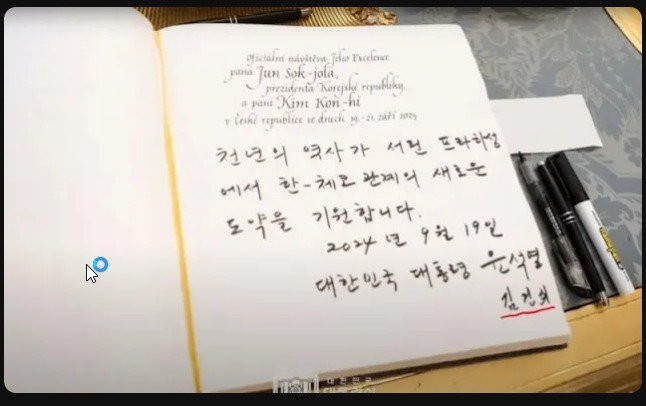 Oficiální návštěva Jeho Excelence
pana Jun Sok-jola,
prezidenta Korejské republiky,
a paní Kim Kon-hi
v České republice ve dnech 19.-21. září 2024
천년의 역사가 서린 프라하성
에서 한-체코 관계의 새로운
도약을 기원합니다.
2024년 9월 19일
대한민국 대통령 윤석열
김건희
대한민국